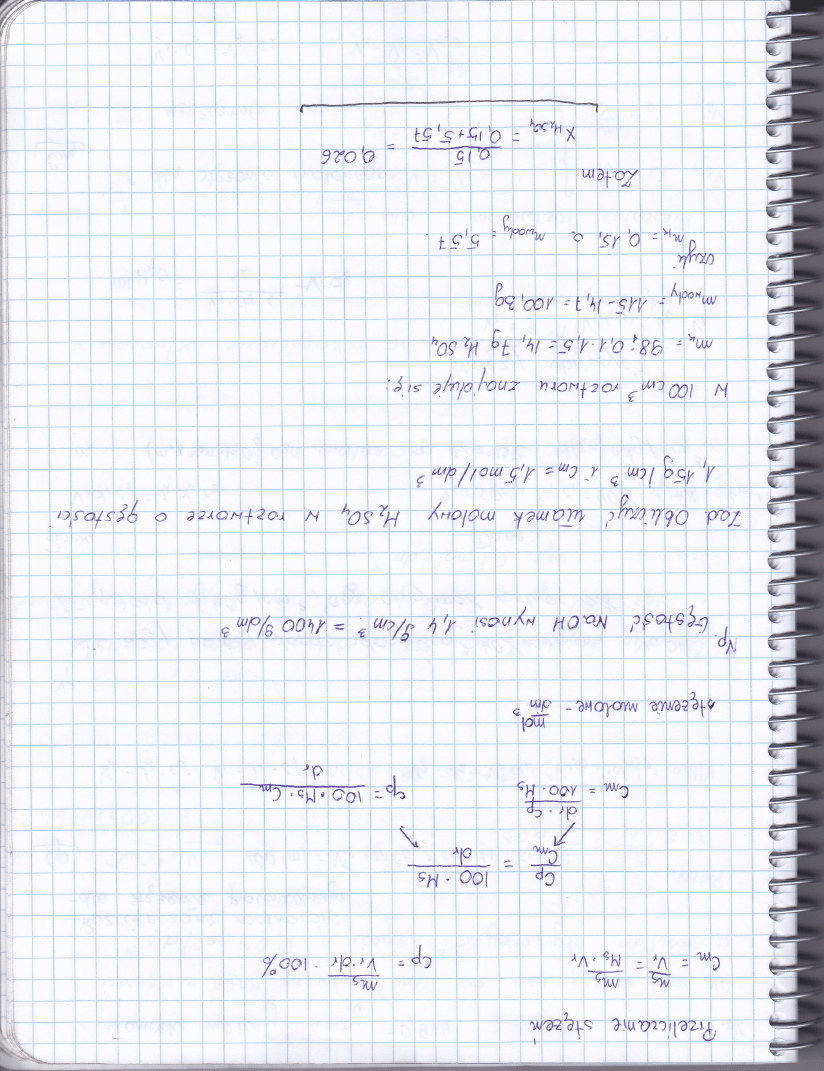 Przeliczanie stężeń
Cm = ns/Vr = ms/Ms·Vr    Cp = ms/Vr·dr · 100%
Cp/Cm = 100·Ms/dr
Cm = dr·Cp/100·Ms    Cp = 100·Ms·Cm/dr
stężenie molowe - mol/dm³
Np. Gęstość NaOH wynosi 1,4 g/cm³ = 1400 g/dm³
Zad Obliczyć ułamek molowy H₂SO₄ w roztworze o gęstości
1,15g/cm³ i cm = 1,5 mol/dm³
W 100 cm³ roztworu znajduje się:
mₖ = 98; 0,1·1,5 = 14,7g H₂SO₄
m wody = 115-14,7 = 100,3g
czyli
mₖ = 0,15, a m wody = 5,57.
Zatem
X H₂SO₄ = 0,15/0,15+5,57 = 0,026